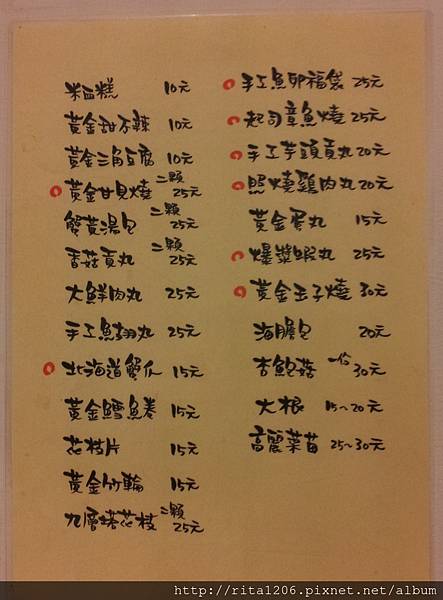 米血糕 10元
黃金甜不辣 10元
黃金三角豆腐 10元
黃金甘貝燒 二顆 25元
蟹黃湯包 二顆 25元
香菇貢丸 二顆 25元
大鮮肉丸 25元
手工魚翅丸 25元
北海道蟹爪 15元
黃金鱈魚卷 15元
花枝片 15元
黃金竹輪 15元
九層塔花枝 二顆 25元
手工魚卵福袋 25元
起司章魚燒 25元
手工芋頭貢丸 20元
照燒雞肉丸 20元
黃金蛋丸 15元
爆漿蝦丸 25元
黃金玉子燒 30元
海膽包 20元
杏鮑菇 一份 30元
大根 15~20元
高麗菜苗 25~30元
http://rita1206.pixnet.net/album